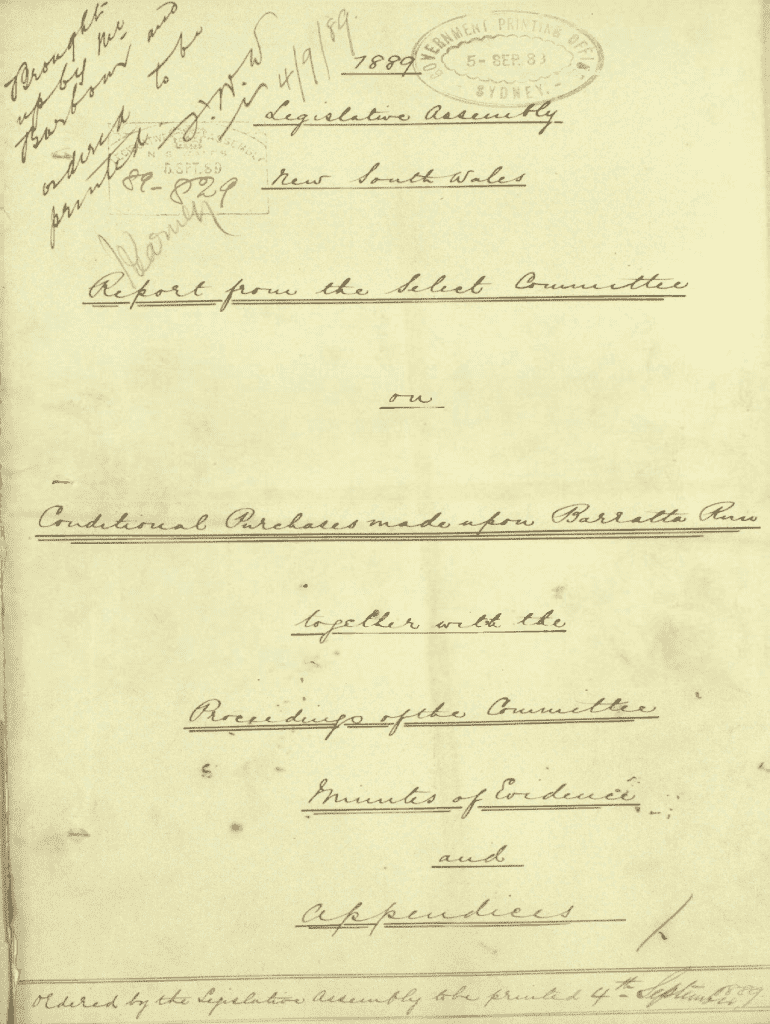 Brought
up by Mr
Barbour and
ordered to be
printed.
4/9/89.
1889
GOVERNMENT PRINTING OFFICE
5-SEP.89
SYDNEY.
Legislative Assembly
5 SEPT.89
89-829
New South Wales
Report from the Select Committee
on
Conditional Purchases made upon Barratta Run
together with the
Proceedings of the Committee
Minutes of Evidence
and
Appendices
Ordered by the Legislative Assembly to be printed 4th September 1889